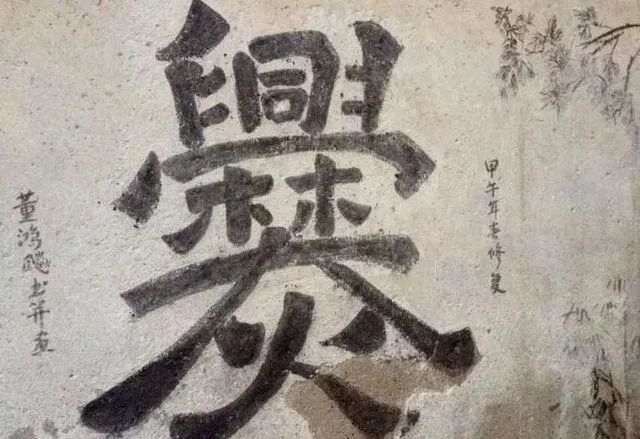 爨
甲午年春修复
董鸿飏书并画